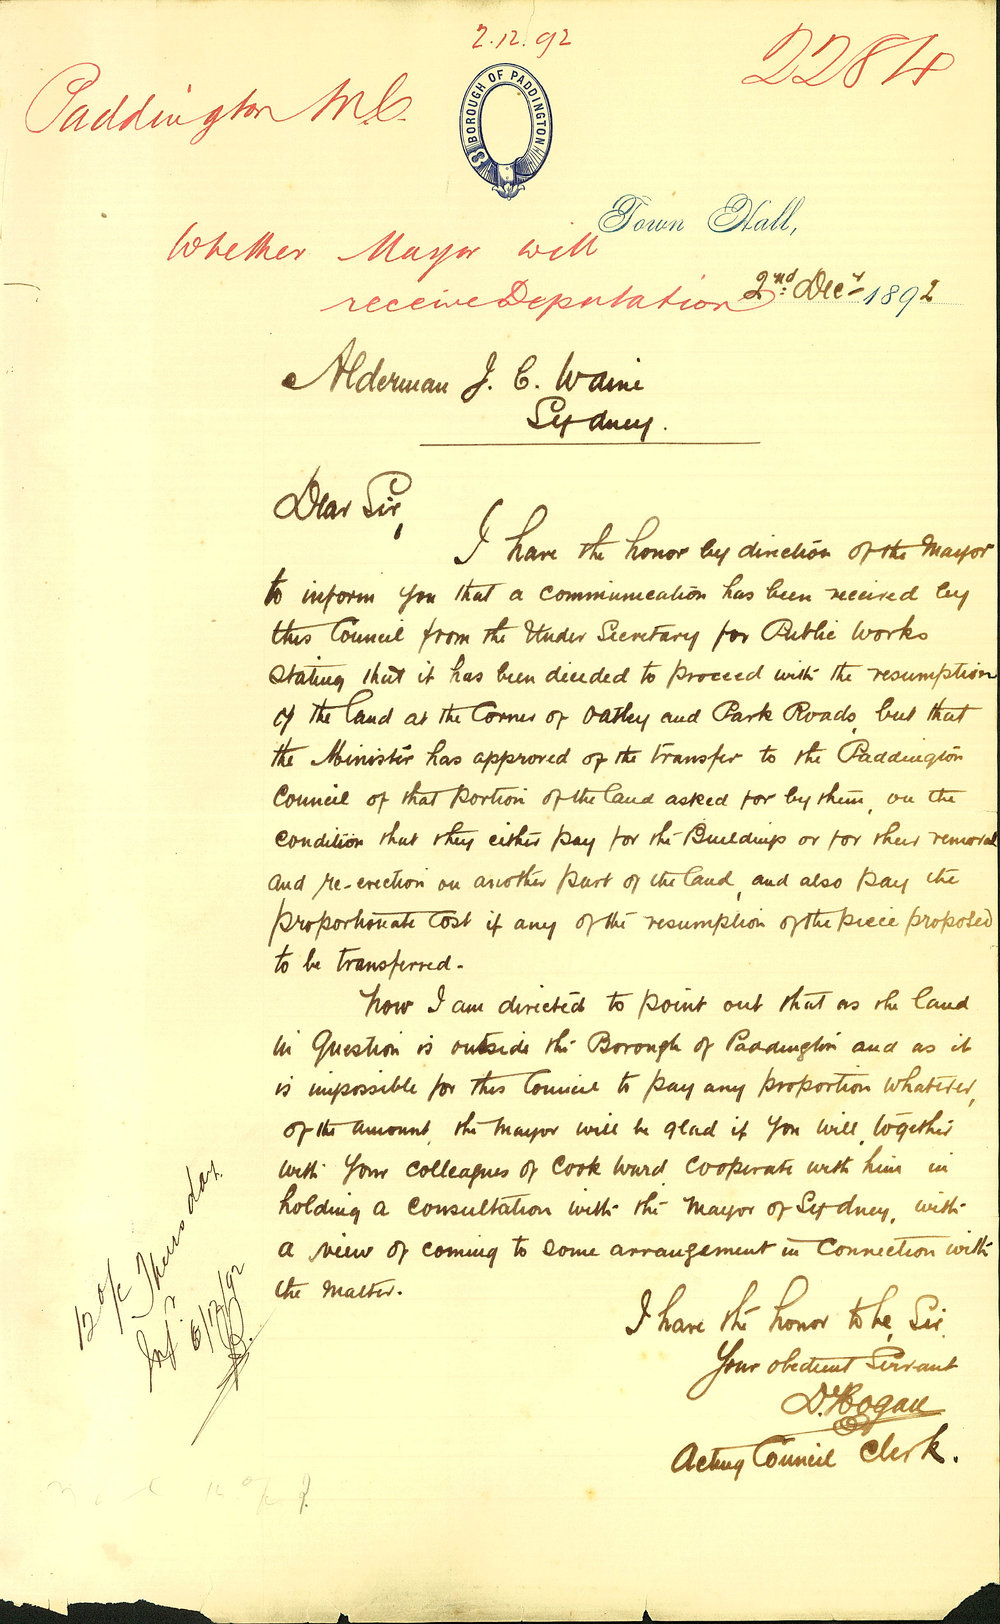 2.12.92
2284
Paddington M.C.
BOROUGH OF PADDINGTON
Town Hall,
Whether Mayor will
receive Deputation
2nd Decr 1892
Alderman J. C. Waine
Sydney.
Dear Sir,
I have the honor by direction of the Mayor
to inform you that a communication has been received by
this Council from the Under Secretary for Public Works
stating that it has been decided to proceed with the resumption
of the land at the Corner of Oatley and Park Roads, but that
the Minister has approved of the transfer to the Paddington
Council of that portion of the land asked for by them, on the
condition that they either pay for the Buildings or for their removal
and re-erection on another part of the land, and also pay the
proportionate Cost if any of the resumption of the piece proposed
to be transferred.
Now I am directed to point out that as the land
in Question is outside the Borough of Paddington and as it
is impossible for this Council to pay any proportion whatever,
of the amount, the Mayor will be glad if you will, together
with your colleagues of Cook Ward cooperate with him in
holding a consultation with the Mayor of Sydney, with
a view of coming to some arrangement in connection with
the matter.
I have the honor to be, Sir,
Your obedient Servant
D. Hogan
Acting Council Clerk.
12 o/c Thursday
Inf. 6/12/92